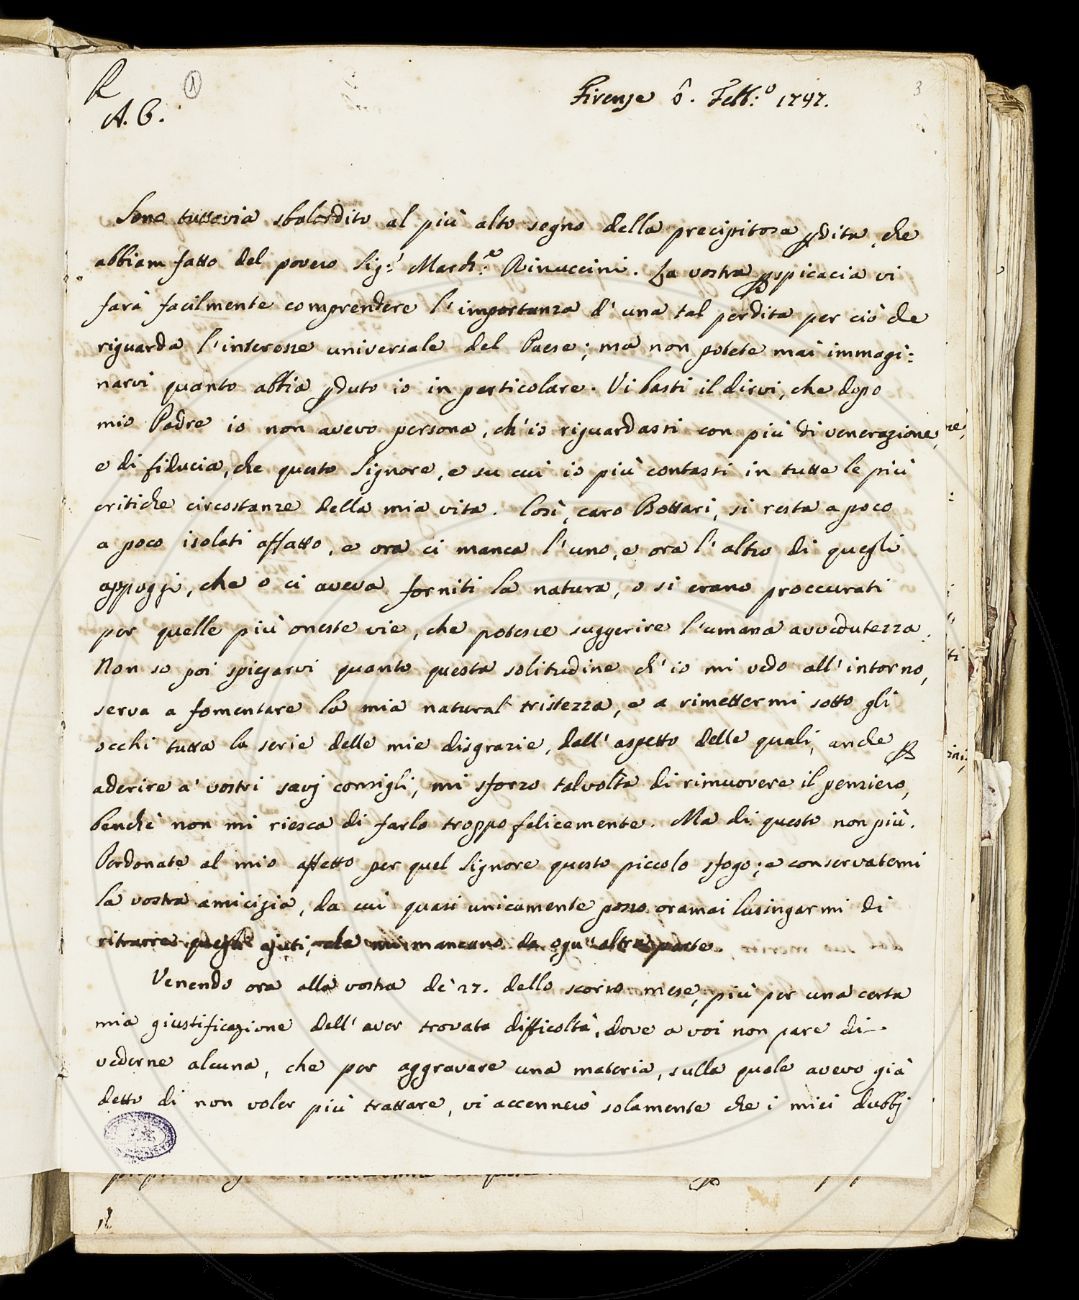 R
A. C.
1
Firenze 6. Febb:o 1747.
3
Sono tuttavia sbalordito al più alto segno della precipitosa pdita, che
abbiam fatto del povero Sig:r March:e Rinuccini. La vostra pspicacia vi
farà facilmente comprendere l'importanza d'una tal perdita per ciò che
riguarda l'interesse universale del Paese; ma non potete mai immagi:
narvi quanto abbia pduto io in particolare. Vi basti il dirvi, che dopo
mio Padre io non avevo persona, ch'io riguardassi con più di venerazione,
e di fiducia, che questo Signore, e su cui io più contassi in tutte le più
critiche circostanze della mia vita. Così, caro Bottari, si resta a poco
a poco isolati affatto, e ora ci manca l'uno, e ora l'altro di quegli
appoggi, che o ci aveva forniti la natura, o si erano proccurati
per quelle più oneste vie, che potesse suggerire l'umana avvedutezza.
Non so poi spiegarvi quanto questa solitudine ch'io mi vedo all'intorno,
serva a fomentare la mia natural tristezza, e a rimettermi sotto gli
occhi tutta la serie delle mie disgrazie, dall'aspetto delle quali, anche p
aderire a' vostri savj consigli, mi sforzo talvolta di rimuovere il pensiero,
benchè non mi riesca di farlo troppo felicemente. Ma di questo non più.
Perdonate al mio affetto per quel Signore questo piccolo sfogo; e conservatemi
la vostra amicizia, da cui quasi unicamente posso oramai lusingarmi di
ritrarre quegli ajuti, che mi mancano da ogn'altra parte.
Venendo ora alla vostra de' 27. dello scorso mese, più per una certa
mia giustificazione dell'aver trovata difficoltà, dove a voi non pare di
vederne alcuna, che per aggravare una materia, sulla quale avevo già
detto di non voler più trattare, vi accennerò solamente che i miei dubbj